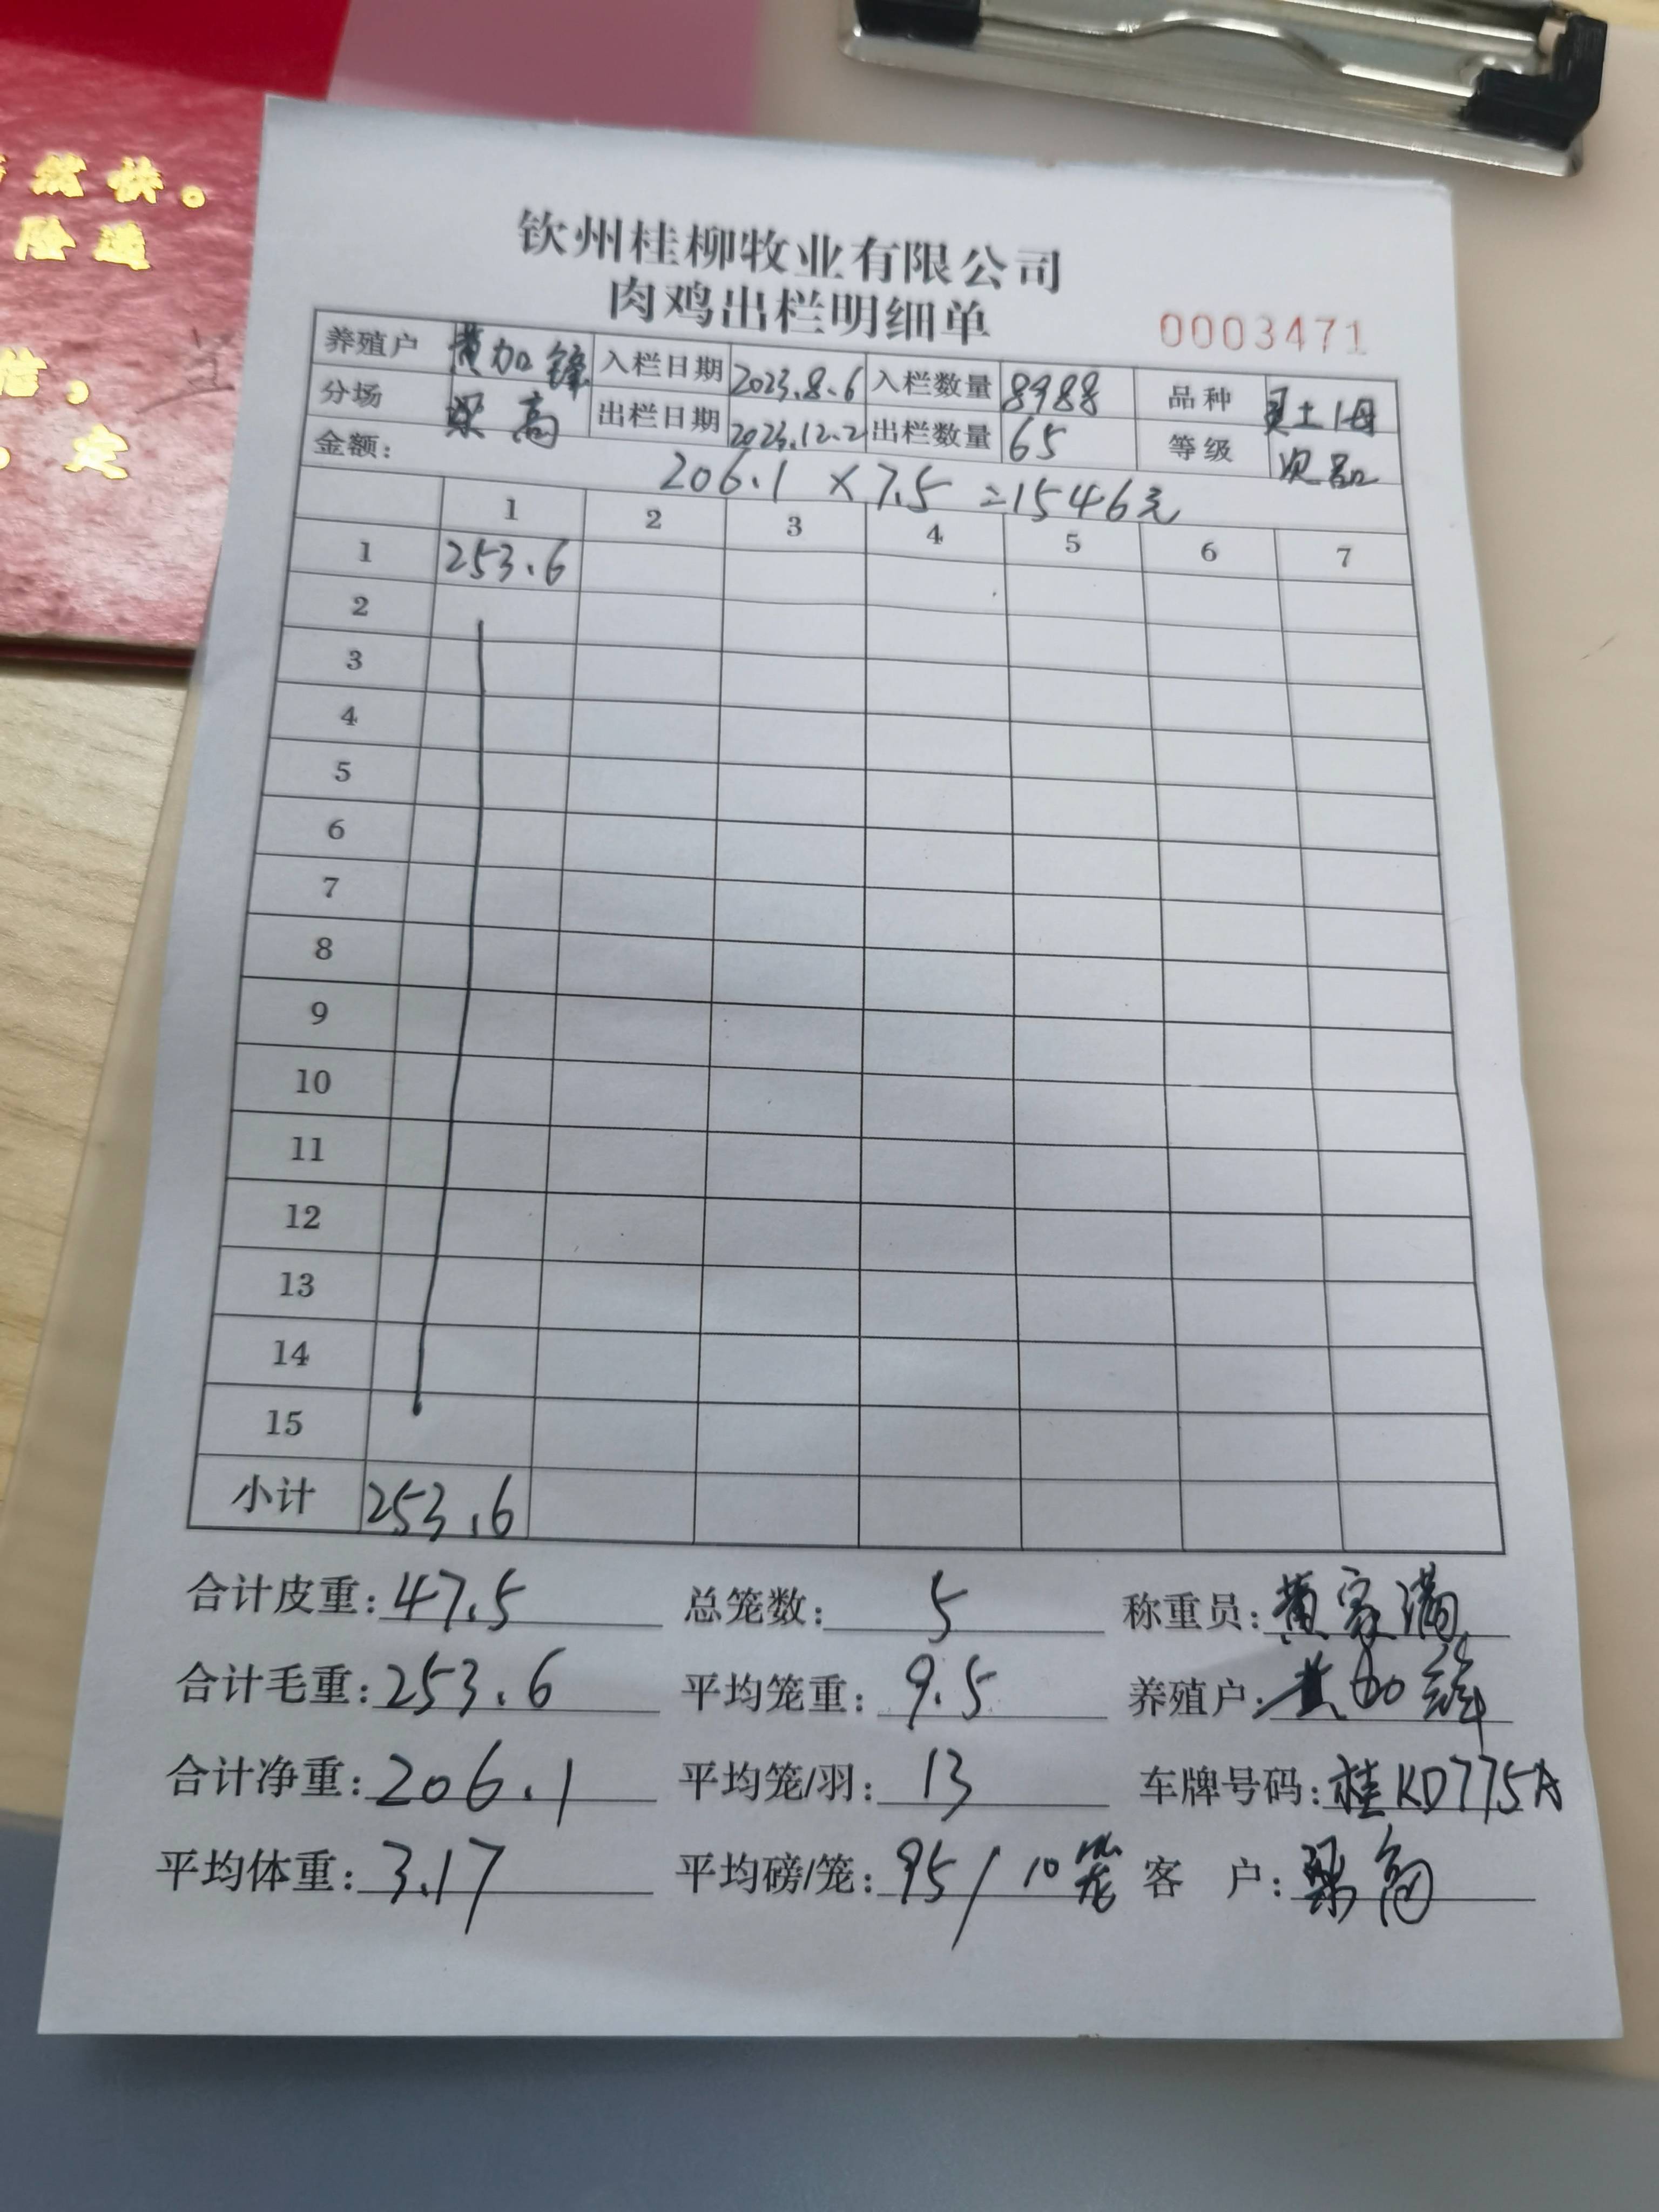 就快。
险通
信,
定
钦州桂柳牧业有限公司
肉鸡出栏明细单
0003471
养殖户 黄加锋 入栏日期 2023.8.6 入栏数量 8988 品种 土1母
分场 梁高 出栏日期 2023.12.2 出栏数量 65 等级 次品
金额: 206.1×7.5=1546元
1 2 3 4 5 6 7
1 253.6
2
3
4
5
6
7
8
9
10
11
12
13
14
15
小计 253.6
合计皮重: 47.5 总笼数: 5 称重员: 黄家满
合计毛重: 253.6 平均笼重: 9.5 养殖户: 黄加锋
合计净重: 206.1 平均笼/羽: 13 车牌号码: 桂KD775A
平均体重: 3.17 平均磅/笼: 95/10笼 客 户: 梁高